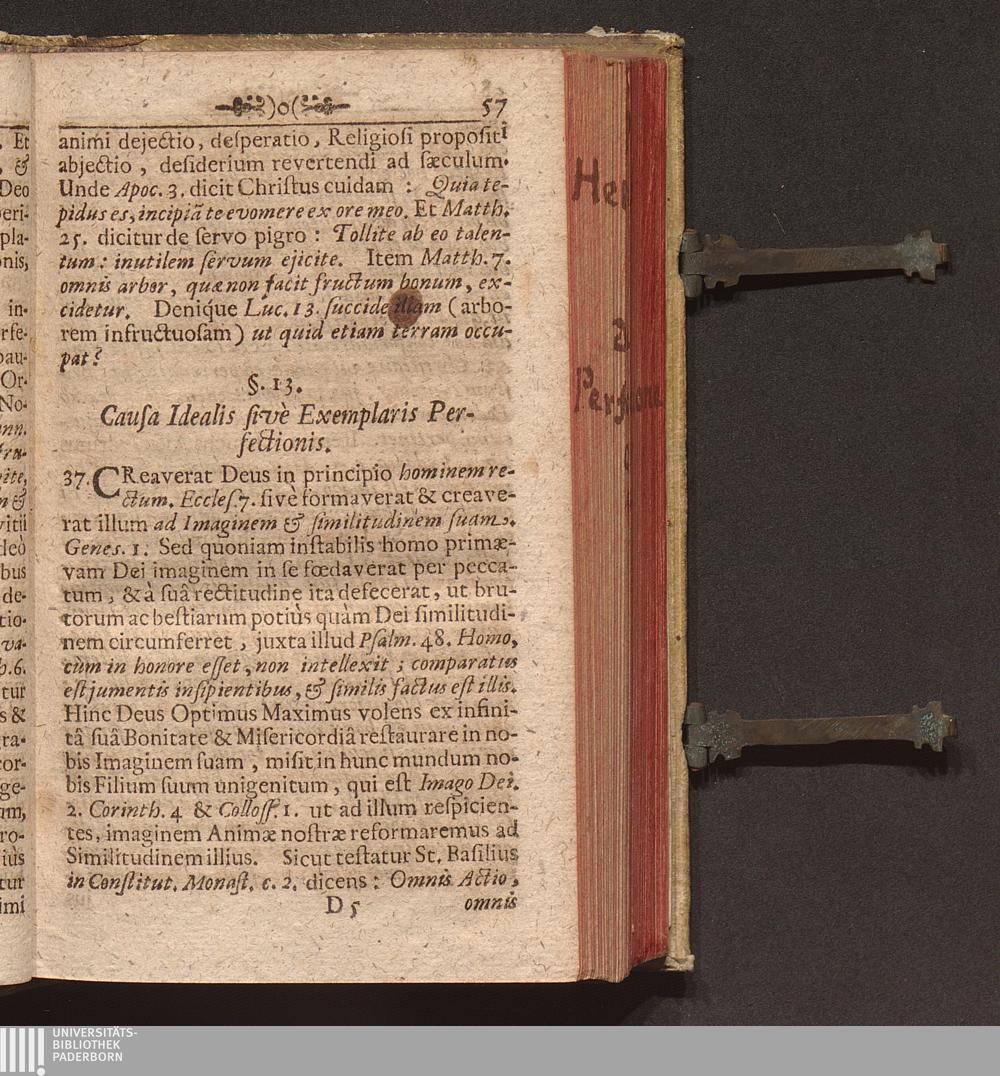 )o( 57
animi dejectio, desperatio, Religiosi propositi
abjectio, desiderium revertendi ad sæculum.
Unde Apoc. 3. dicit Christus cuidam : Quia te-
pidus es, incipiã te evomere ex ore meo. Et Matth.
25. dicitur de servo pigro : Tollite ab eo talen-
tum : inutilem servum ejicite. Item Matth. 7.
omnis arbor, quæ non facit fructum bonum, ex-
cidetur. Denique Luc. 13. succide illam (arbo-
rem infructuosam) ut quid etiam terram occu-
pat?
§. 13.
Causa Idealis sivè Exemplaris Per-
fectionis.
37. CReaverat Deus in principio hominem re-
ctum. Eccles. 7. sivè formaverat & creave-
rat illum ad Imaginem & similitudinem suam.
Genes. 1. Sed quoniam instabilis homo primæ-
vam Dei imaginem in se fœdaverat per pecca-
tum, & à suâ rectitudine ita defecerat, ut bru-
torum ac bestiarum potiùs quàm Dei similitudi-
nem circumferret, juxta illud Psalm. 48. Homo,
cùm in honore esset, non intellexit ; comparatus
est jumentis insipientibus, & similis factus est illis.
Hinc Deus Optimus Maximus volens ex infini-
tâ suâ Bonitate & Misericordiâ restaurare in no-
bis Imaginem suam, misit in hunc mundum no-
bis Filium suum unigenitum, qui est Imago Dei.
2. Corinth. 4 & Coloss. 1. ut ad illum respicien-
tes, imaginem Animæ nostræ reformaremus ad
Similitudinem illius. Sicut testatur St. Basilius
in Constitut. Monast. c. 2. dicens : Omnis Actio,
D 5 omnis
UNIVERSITÄTS-
BIBLIOTHEK
PADERBORN